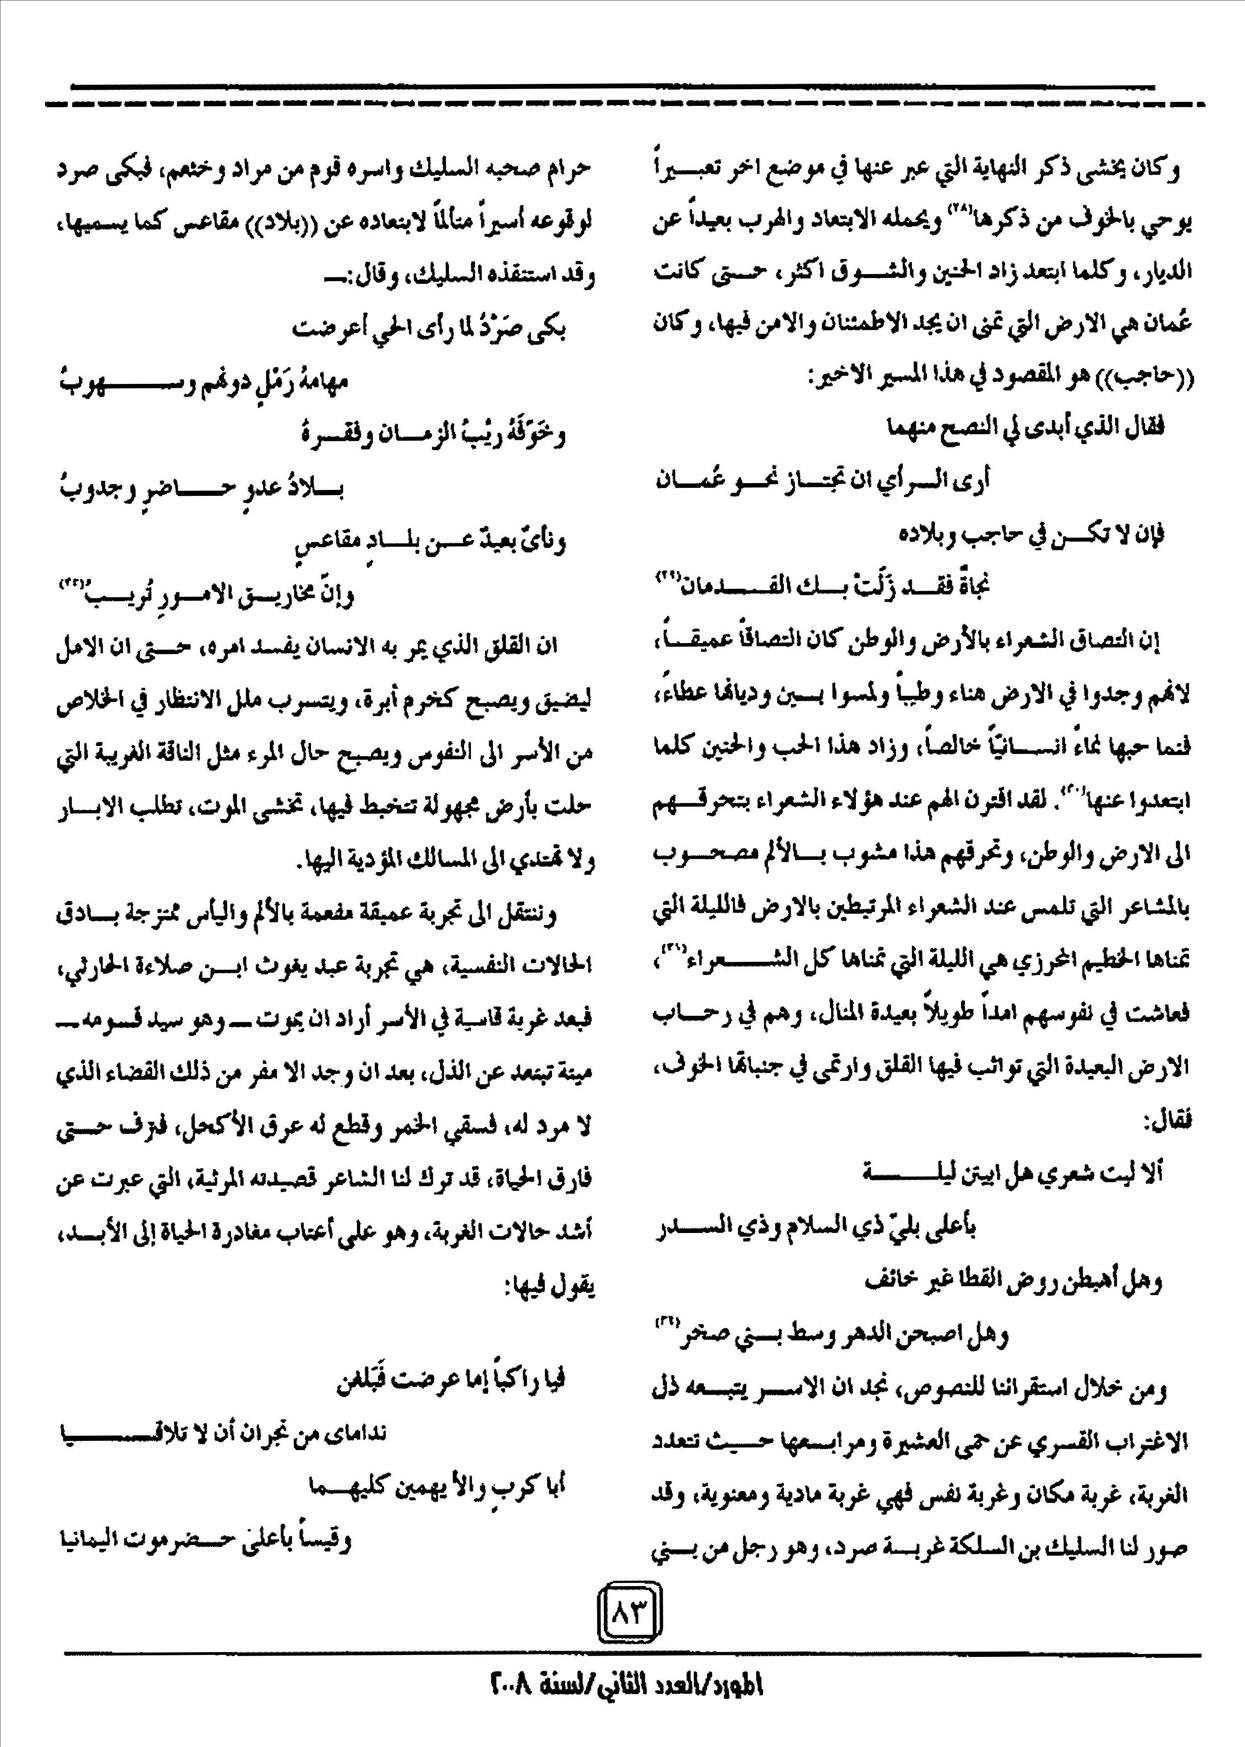 وكان يخشى ذكر النهاية التي عبر عنها في موضع اخر تعبـيراً
يوحي بالخوف من ذكرها(٢٨) ويحمله الابتعاد والهرب بعيداً عن
الديار، وكلما ابتعد زاد الحنين والشـوق اكثر، حـتى كانت
عُمان هي الارض التي تمنى ان يجد الاطمئنان والامن فيها، وكان
((حاجب)) هو المقصود في هذا المسير الاخير:
فقال الذي أبدى لي النصح منهما
أرى الـرأي ان تجتـاز نحـو عُمـان
فإن لا تكـن في حاجب وبلاده
نجاةٌ فقـد زَلّتْ بـك القـدمان(٢٩)
إن التصاق الشعراء بالأرض والوطن كان التصاقاً عميقـاً،
لانهم وجدوا في الارض هناء وطيباً ولمسوا بـين وديانها عطاءً،
فنما حبها نماءً انسـانيّاً خالصاً، وزاد هذا الحب والحنين كلما
ابتعدوا عنها(٣٠). لقد اقترن الهم عند هؤلاء الشعراء بتحرقـهم
الى الارض والوطن، وتحرقهم هذا مشوب بـالألم مصحـوب
بالمشاعر التي تلمس عند الشعراء المرتبطين بالارض فالليلة التي
تمناها الخطيم المحرزي هي الليلة التي تمناها كل الشـعراء(٣١)،
فعاشت في نفوسهم امداً طويلاً بعيدة المنال، وهم في رحـاب
الارض البعيدة التي تواثب فيها القلق وارتمى في جنباتها الخوف،
فقال:
ألا ليت شعري هل ابيتن ليلـــة
بأعلى بليّ ذي السلام وذي السـدر
وهل أهبطن روض القطا غير خائف
وهل اصبحن الدهر وسط بـني صخر(٣٢)
ومن خلال استقرائنا للنصوص، نجد ان الاسـر يتبـعه ذل
الاغتراب القسري عن حمى العشيرة ومرابـعها حـيث تتعدد
الغربة، غربة مكان وغربة نفس فهي غربة مادية ومعنوية، وقد
صور لنا السليك بن السلكة غربـة صرد، وهو رجل من بـني
حرام صحبه السليك واسره قوم من مراد وخثعم، فبكى صرد
لوقوعه أسيراً متألماً لابتعاده عن ((بلاد)) مقاعس كما يسميها،
وقد استنقذه السليك، وقال:ـ
بكى صَرَدٌ لما رأى الحي أعرضت
مهامهُ رَمْلٍ دونهم وســهوبُ
وخَوّفَهُ ريْبُ الزمـان وفقـرهُ
بـلادُ عدوٍ حـاضرٍ وجدوبُ
ونأىٌ بعيدٌ عـن بلـادِ مقاعسٍ
وإنّ مخاريـق الامـورِ تُريـبُ(٣٣)
ان القلق الذي يمر به الانسان يفسد امره، حـتى ان الامل
ليضيق ويصبح كخرم أبرة، ويتسرب ملل الانتظار في الخلاص
من الأسر الى النفوس ويصبح حال المرء مثل الناقة الغريبة التي
حلت بأرض مجهولة تتخبط فيها، تخشى الموت، تطلب الابـار
ولا تهتدي الى المسالك المؤدية اليها.
وننتقل الى تجربة عميقة مفعمة بالألم واليأس ممتزجة بـادق
الحالات النفسية، هي تجربة عبد يغوث ابـن صلاءة الحارثي،
فبعد غربة قاسية في الأسر أراد ان يموت ـ وهو سيد قـومه ـ
ميتة تبتعد عن الذل، بعد ان وجد الا مفر من ذلك القضاء الذي
لا مرد له، فسقي الخمر وقطع له عرق الأكحل، فنزف حـتى
فارق الحياة، قد ترك لنا الشاعر قصيدته المرثية، التي عبرت عن
أشد حالات الغربة، وهو على أعتاب مغادرة الحياة إلى الأبـد،
يقول فيها:
فيا راكباً إما عرضت فَبَلغن
نداماى من نجران أن لا تلاقـــيا
أبا كربٍ والأيهمين كليهـما
وقيساً بأعلىْ حـضرموت اليمانيا
٨٣
المورد/العدد الثاني/لسنة ٢٠٠٨